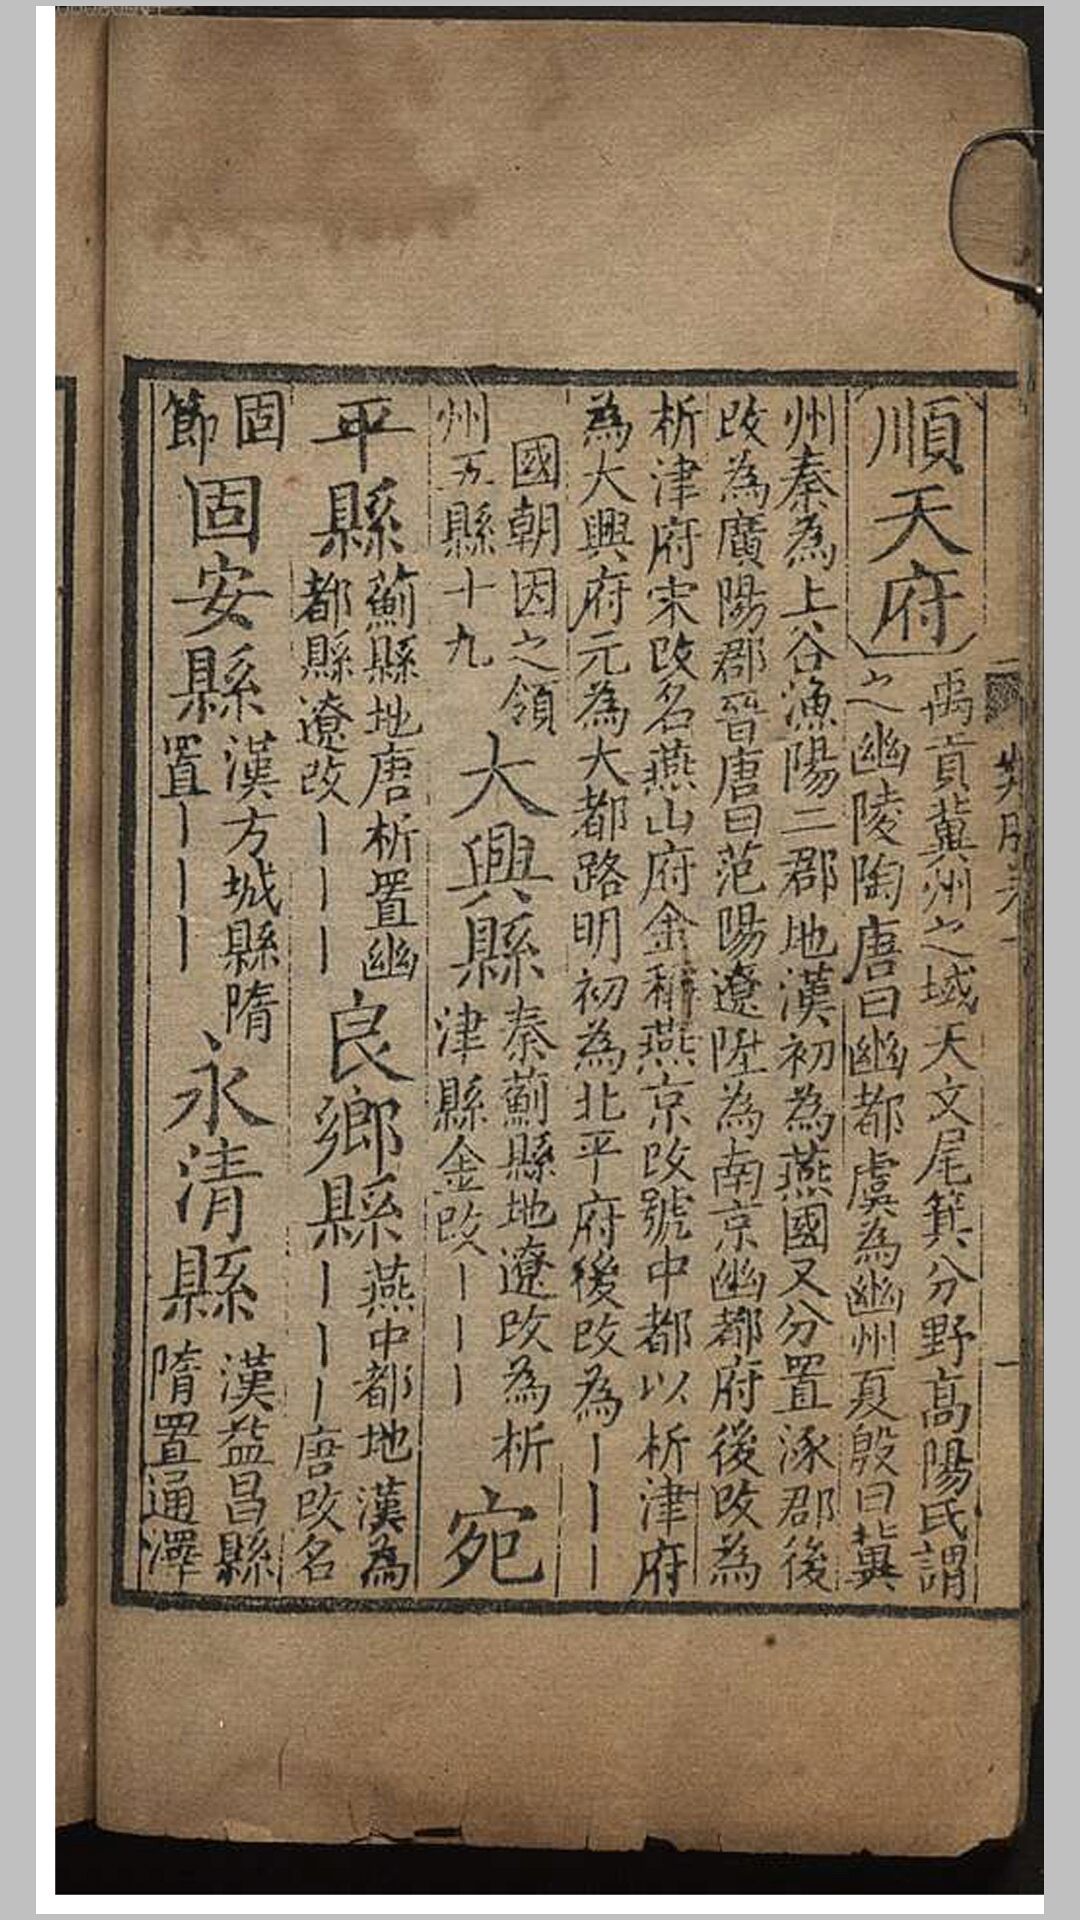 順天府
禹貢冀州之域天文尾箕分野高陽氏謂
之幽陵陶唐曰幽都虞為幽州夏殷曰冀
州秦為上谷漁陽二郡地漢初為燕國又分置涿郡後
改為廣陽郡晉唐曰范陽遼陞為南京幽都府後改為
析津府宋改名燕山府金稱燕京改號中都以析津府
為大興府元為大都路明初為北平府後改為｜｜｜
國朝因之領
州五縣十九
大興縣
秦薊縣地遼改為析
津縣金改｜｜｜
宛
平縣
薊縣地唐析置幽
都縣遼改｜｜｜
良鄉縣
燕中都地漢為
｜｜｜唐改名
固
節
固安縣
漢方城縣隋
置｜｜｜
永清縣
漢益昌縣
隋置通澤